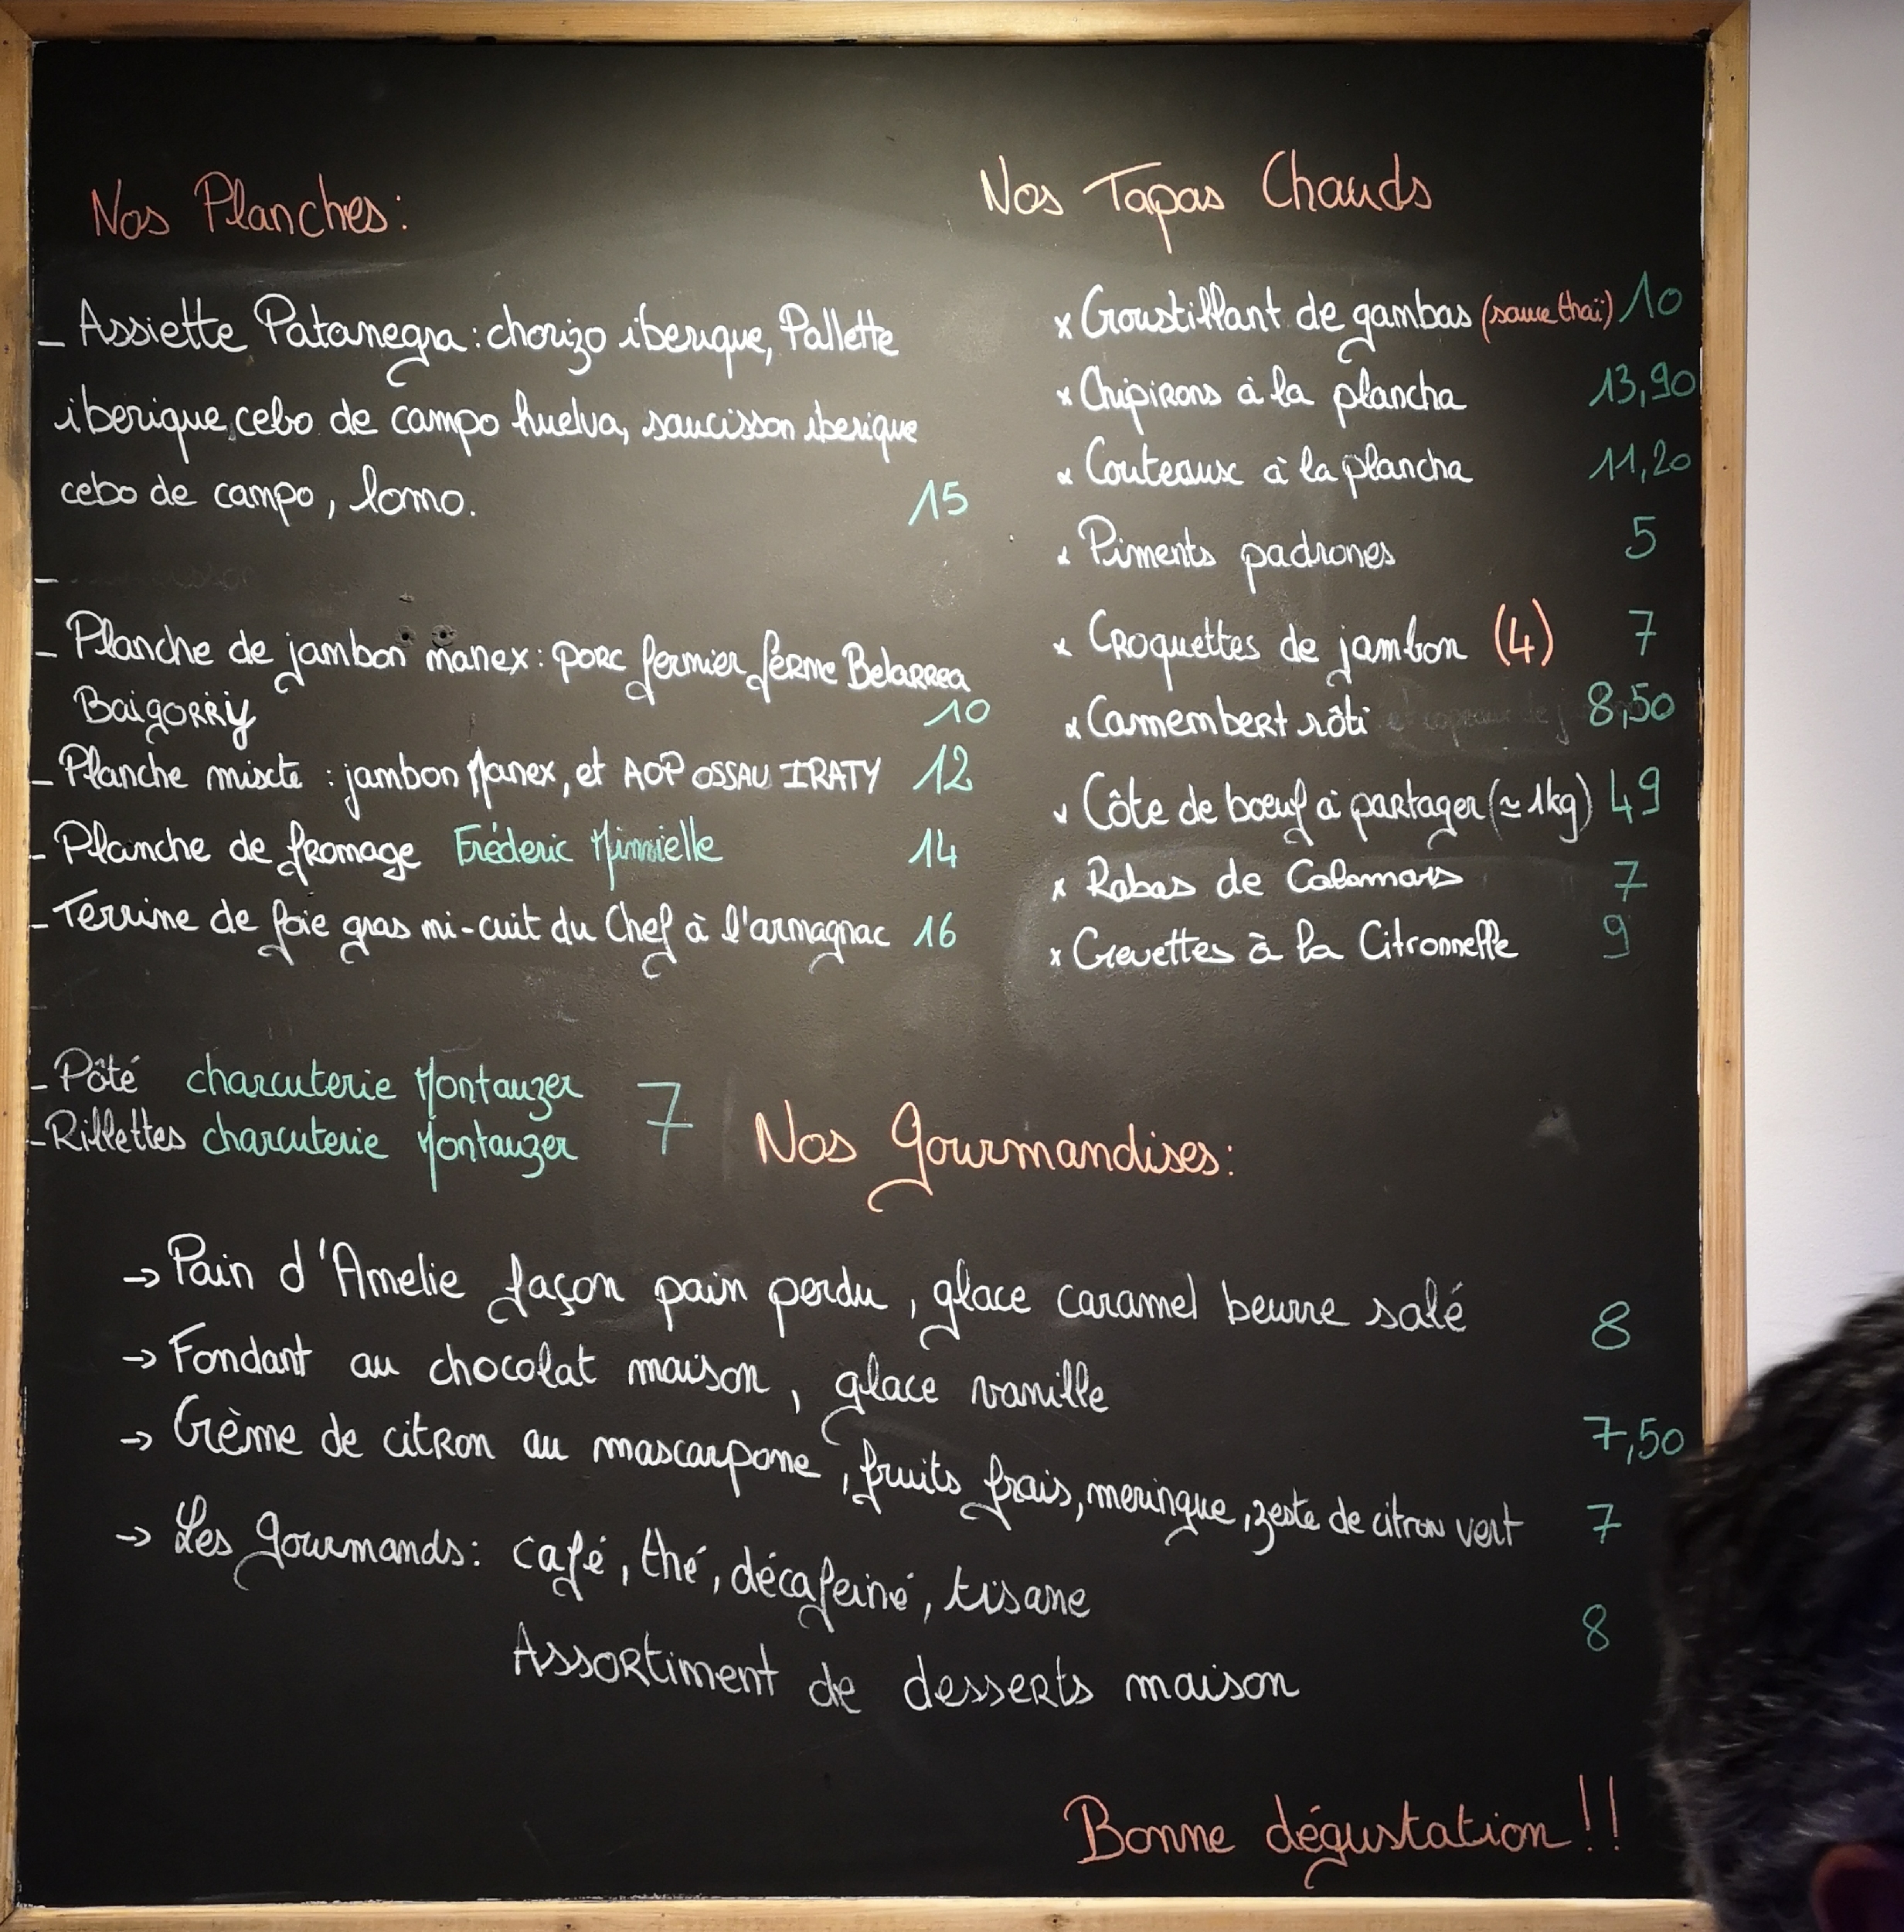 Nos Planches:
- Assiette Patanegra: chorizo iberique, Pallette
iberique, cebo de campo huelva, saucisson iberique
cebo de campo, lomo. 15
-
- Planche de jambon manex: porc fermier ferme Belarrea
Baigorry 10
- Planche mixte : jambon Manex, et AOP OSSAU IRATY 12
- Planche de fromage Fréderic 14
- Terrine de foie gras mi-cuit du Chef à l'armagnac 16
- Pâté charcuterie Montauzer
- Rillettes charcuterie Montauzer 7
Nos Tapas Chauds
x Croustillant de gambas (sauce thaï) 10
x Chipirons à la plancha 13,90
x Couteaux à la plancha 11,20
x Piments padrones 5
x Croquettes de jambon (4) 7
x Camembert rôti 8,50
x Côte de boeuf à partager (≃ 1kg) 49
x Rabas de Calamars 7
x Crevettes à la Citronnelle 9
Nos gourmandises:
→ Pain d'Amelie façon pain perdu, glace caramel beurre salé 8
→ Fondant au chocolat maison, glace vanille 7,50
→ Crème de citron au mascarpone, fruits frais, meringue, zeste de citron vert 7
→ Les gourmands: café, thé, décafeiné, tisane
Assortiment de desserts maison 8
Bonne dégustation!!